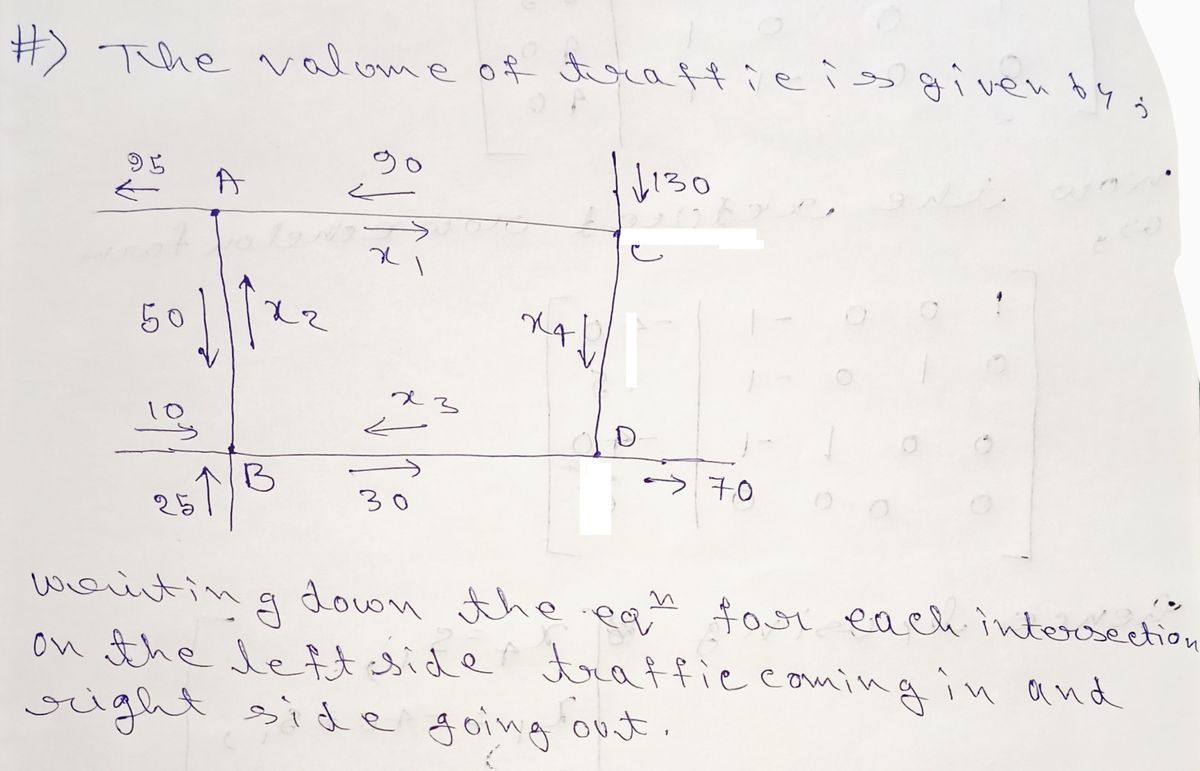 #) The valume of traffic is given by;
95 A 90 ↓130
x1 C
50 x2 x4
10 x3 D
25 B 30 → 70
writing down the eqn for each intersection
on the left side traffic coming in and
right side going out.